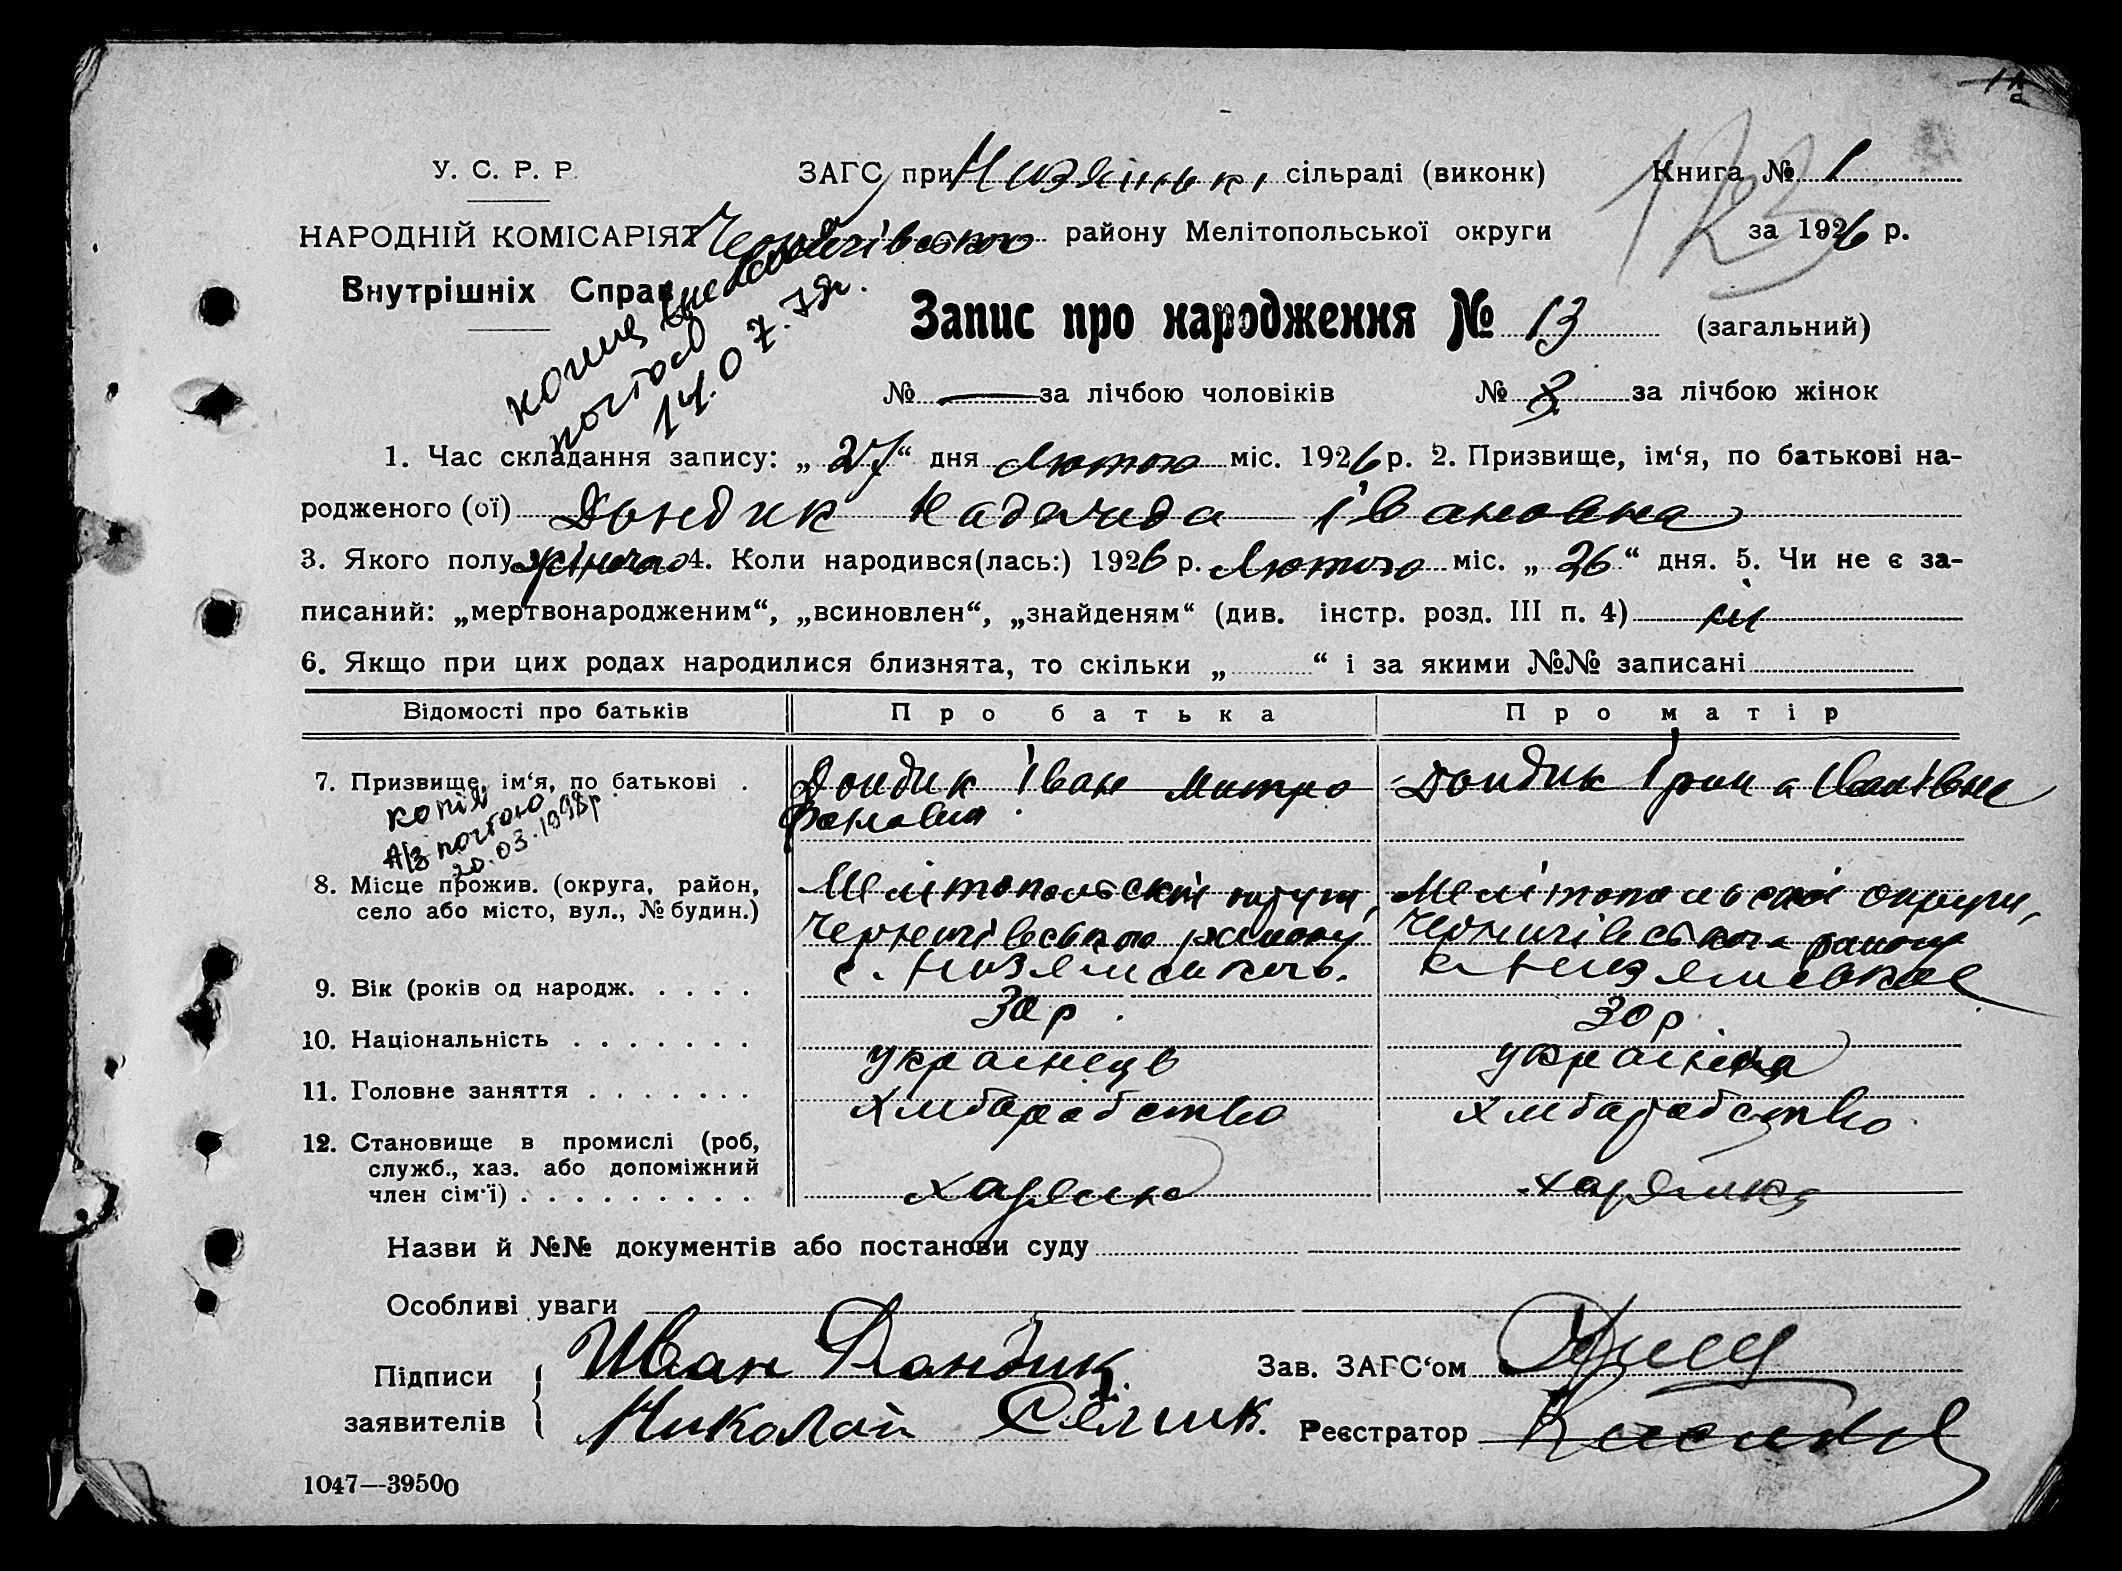 У. С. Р. Р.
ЗАГС при Низянські сільраді (виконк)
Книга № 1
123
НАРОДНІЙ КОМІСАРІЯТ
Чернигівського району Мелітопольської округи
за 1926 р.
Внутрішніх Справ
почтою
14.07.79г.
Запис про народження № 13 (загальний)
№ — за лічбою чоловіків № 8 за лічбою жінок
1. Час складання запису: „ 27 “ дня Лютого міс. 1926 р. 2. Призвище, ім‘я, по батькові на-
родженого (ої) Дондик Надежда Івановна
3. Якого полу жіночого 4. Коли народився(лась:) 1926 р. Лютого міс. „ 26 “ дня. 5. Чи не є за-
писаний: „мертвонародженим“, „всиновлен“, „знайденям“ (див. інстр. розд. III п. 4) ні
6. Якщо при цих родах народилися близнята, то скільки „ “ і за якими №№ записані
Відомості про батьків Про батька Про матір
7. Призвище, ім‘я, по батькові . Дондик Іван Митро Дондик Ірина Іванівна
фанович
копія
А/з почтою
20.03.1998р
8. Місце прожив. (округа, район, Мелітопольскої округи, Мелітопольскої округи,
село або місто, вул., № будин.) Чернигівського району Чернигівського району
9. Вік (років од народж. . . . . 30 р. 30 р.
10. Національність . . . . . . . українець українка
11. Головне заняття . . . . . . . хліборобство хліборобство
12. Становище в промислі (роб,
служб., хаз. або допоміжний
член сім‘ї) . . . . . . . . . хазяин хазяйка
Назви й №№ документів або постанови суду
Особливі уваги
Підписи Иван Дондик. Зав. ЗАГС‘ом
заявителів Николай Реєстратор
1047—39500